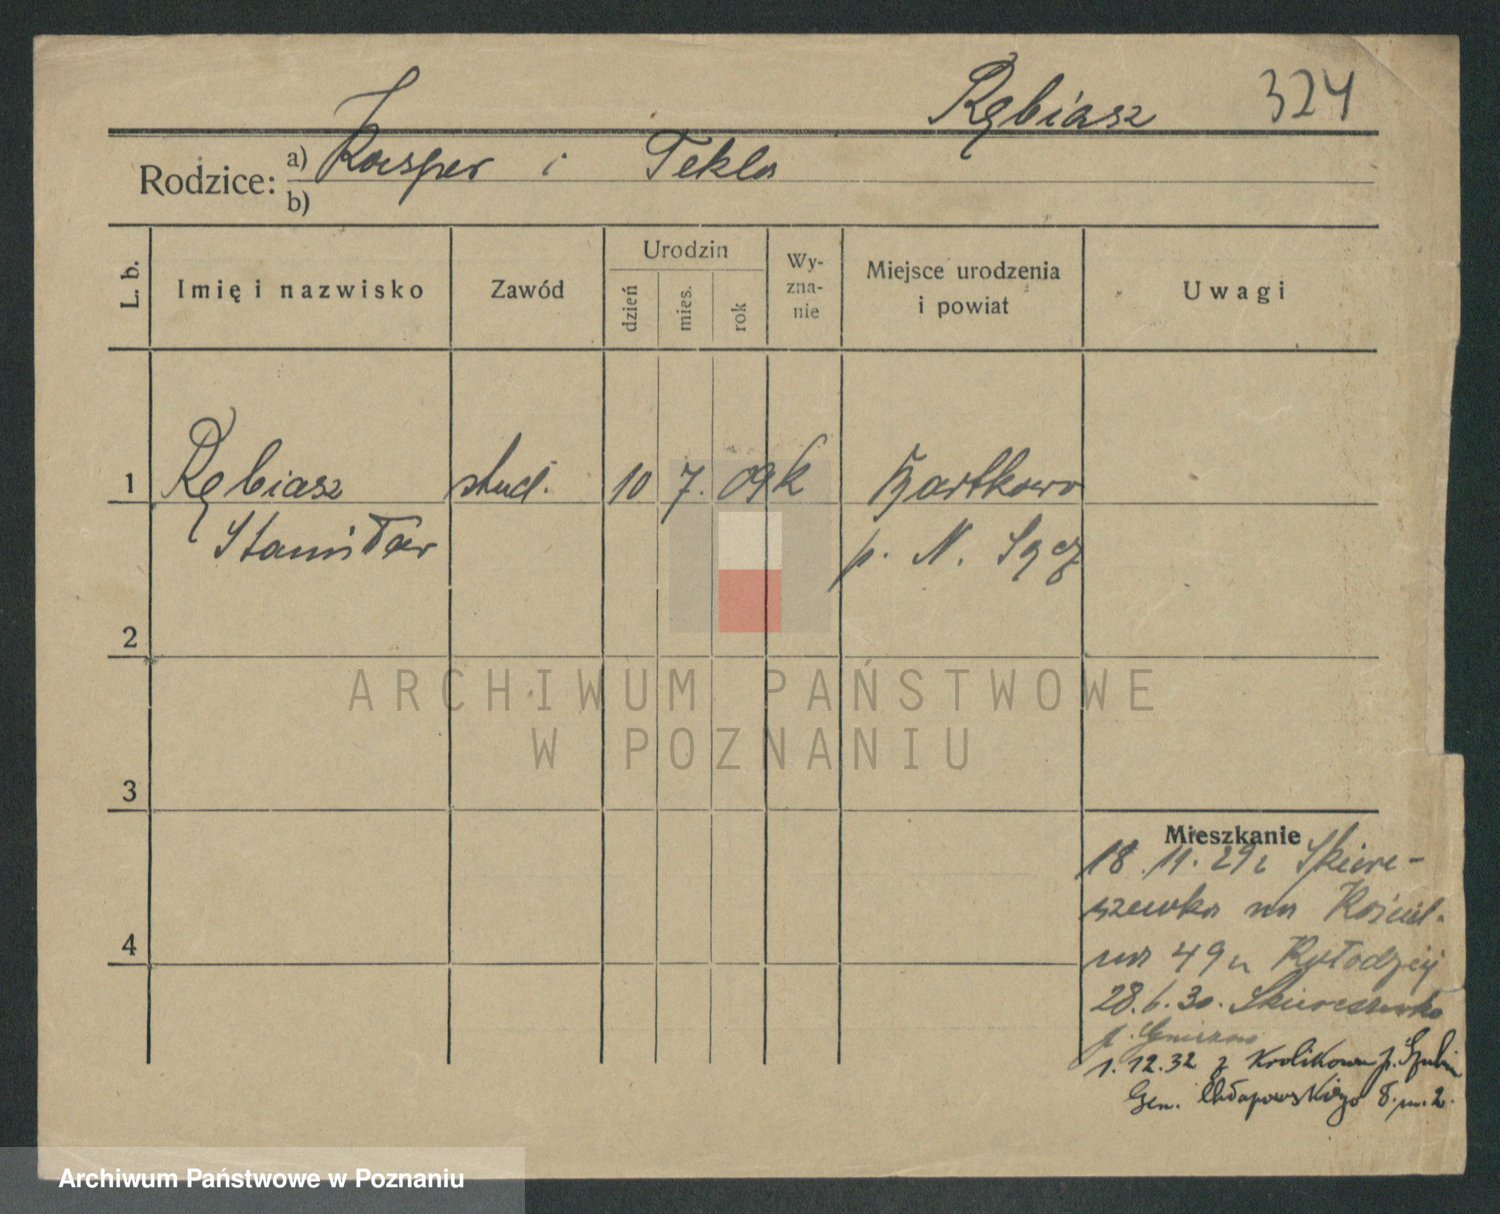 Rębiasz 324
Rodzice: a) Kasper i Tekla
b)
L. b. Imię i nazwisko Zawód Urodzin dzień mies. rok Wy-zna-nie Miejsce urodzenia i powiat Uwagi
1 Rębiasz stud. 10 7. 09 k Bartkowo
Stanisław p. N. Sącz
2
ARCHIWUM PAŃSTWOWE
W POZNANIU
3
Mieszkanie
18.11.29 z Skiere-
szewka na Kościel-
na 49 u
4
28.6.30. Skiereszewko
p. Gniezno
1.12.32 z Krolikowa p. Szubin
Gen. Chłapowskiego 8. m. 2.
Archiwum Państwowe w Poznaniu